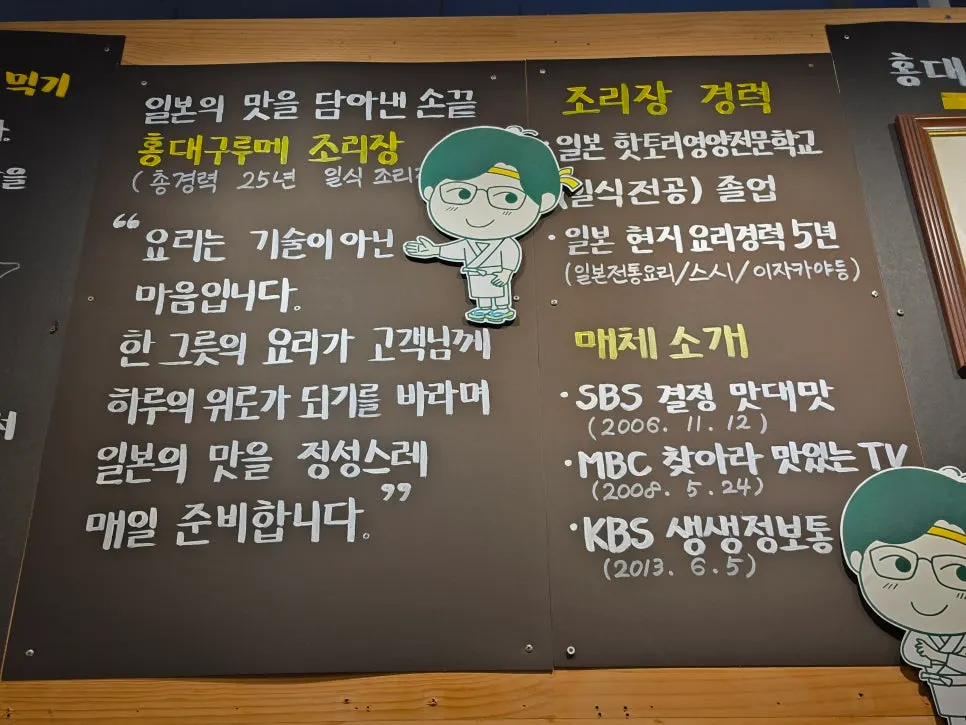 믹기
일본의 맛을 담아낸 손끝
홍대구루메 조리장
(총경력 25년 일식
“요리는 기술이 아닌
마음입니다.
한 그릇의 요리가 고객님께
하루의 위로가 되기를 바라며
일본의 맛을 정성스레
매일 준비합니다.”
조리장 경력
· 일본 핫토리영양전문학교
(일식전공) 졸업
· 일본 현지 요리경력 5년
(일본전통요리/스시/이자카야등)
매체 소개
· SBS 결정 맛대맛
(2006. 11. 12)
· MBC 찾아라 맛있는TV
(2008. 5. 24)
· KBS 생생정보통
(2013. 6. 5)
홍대